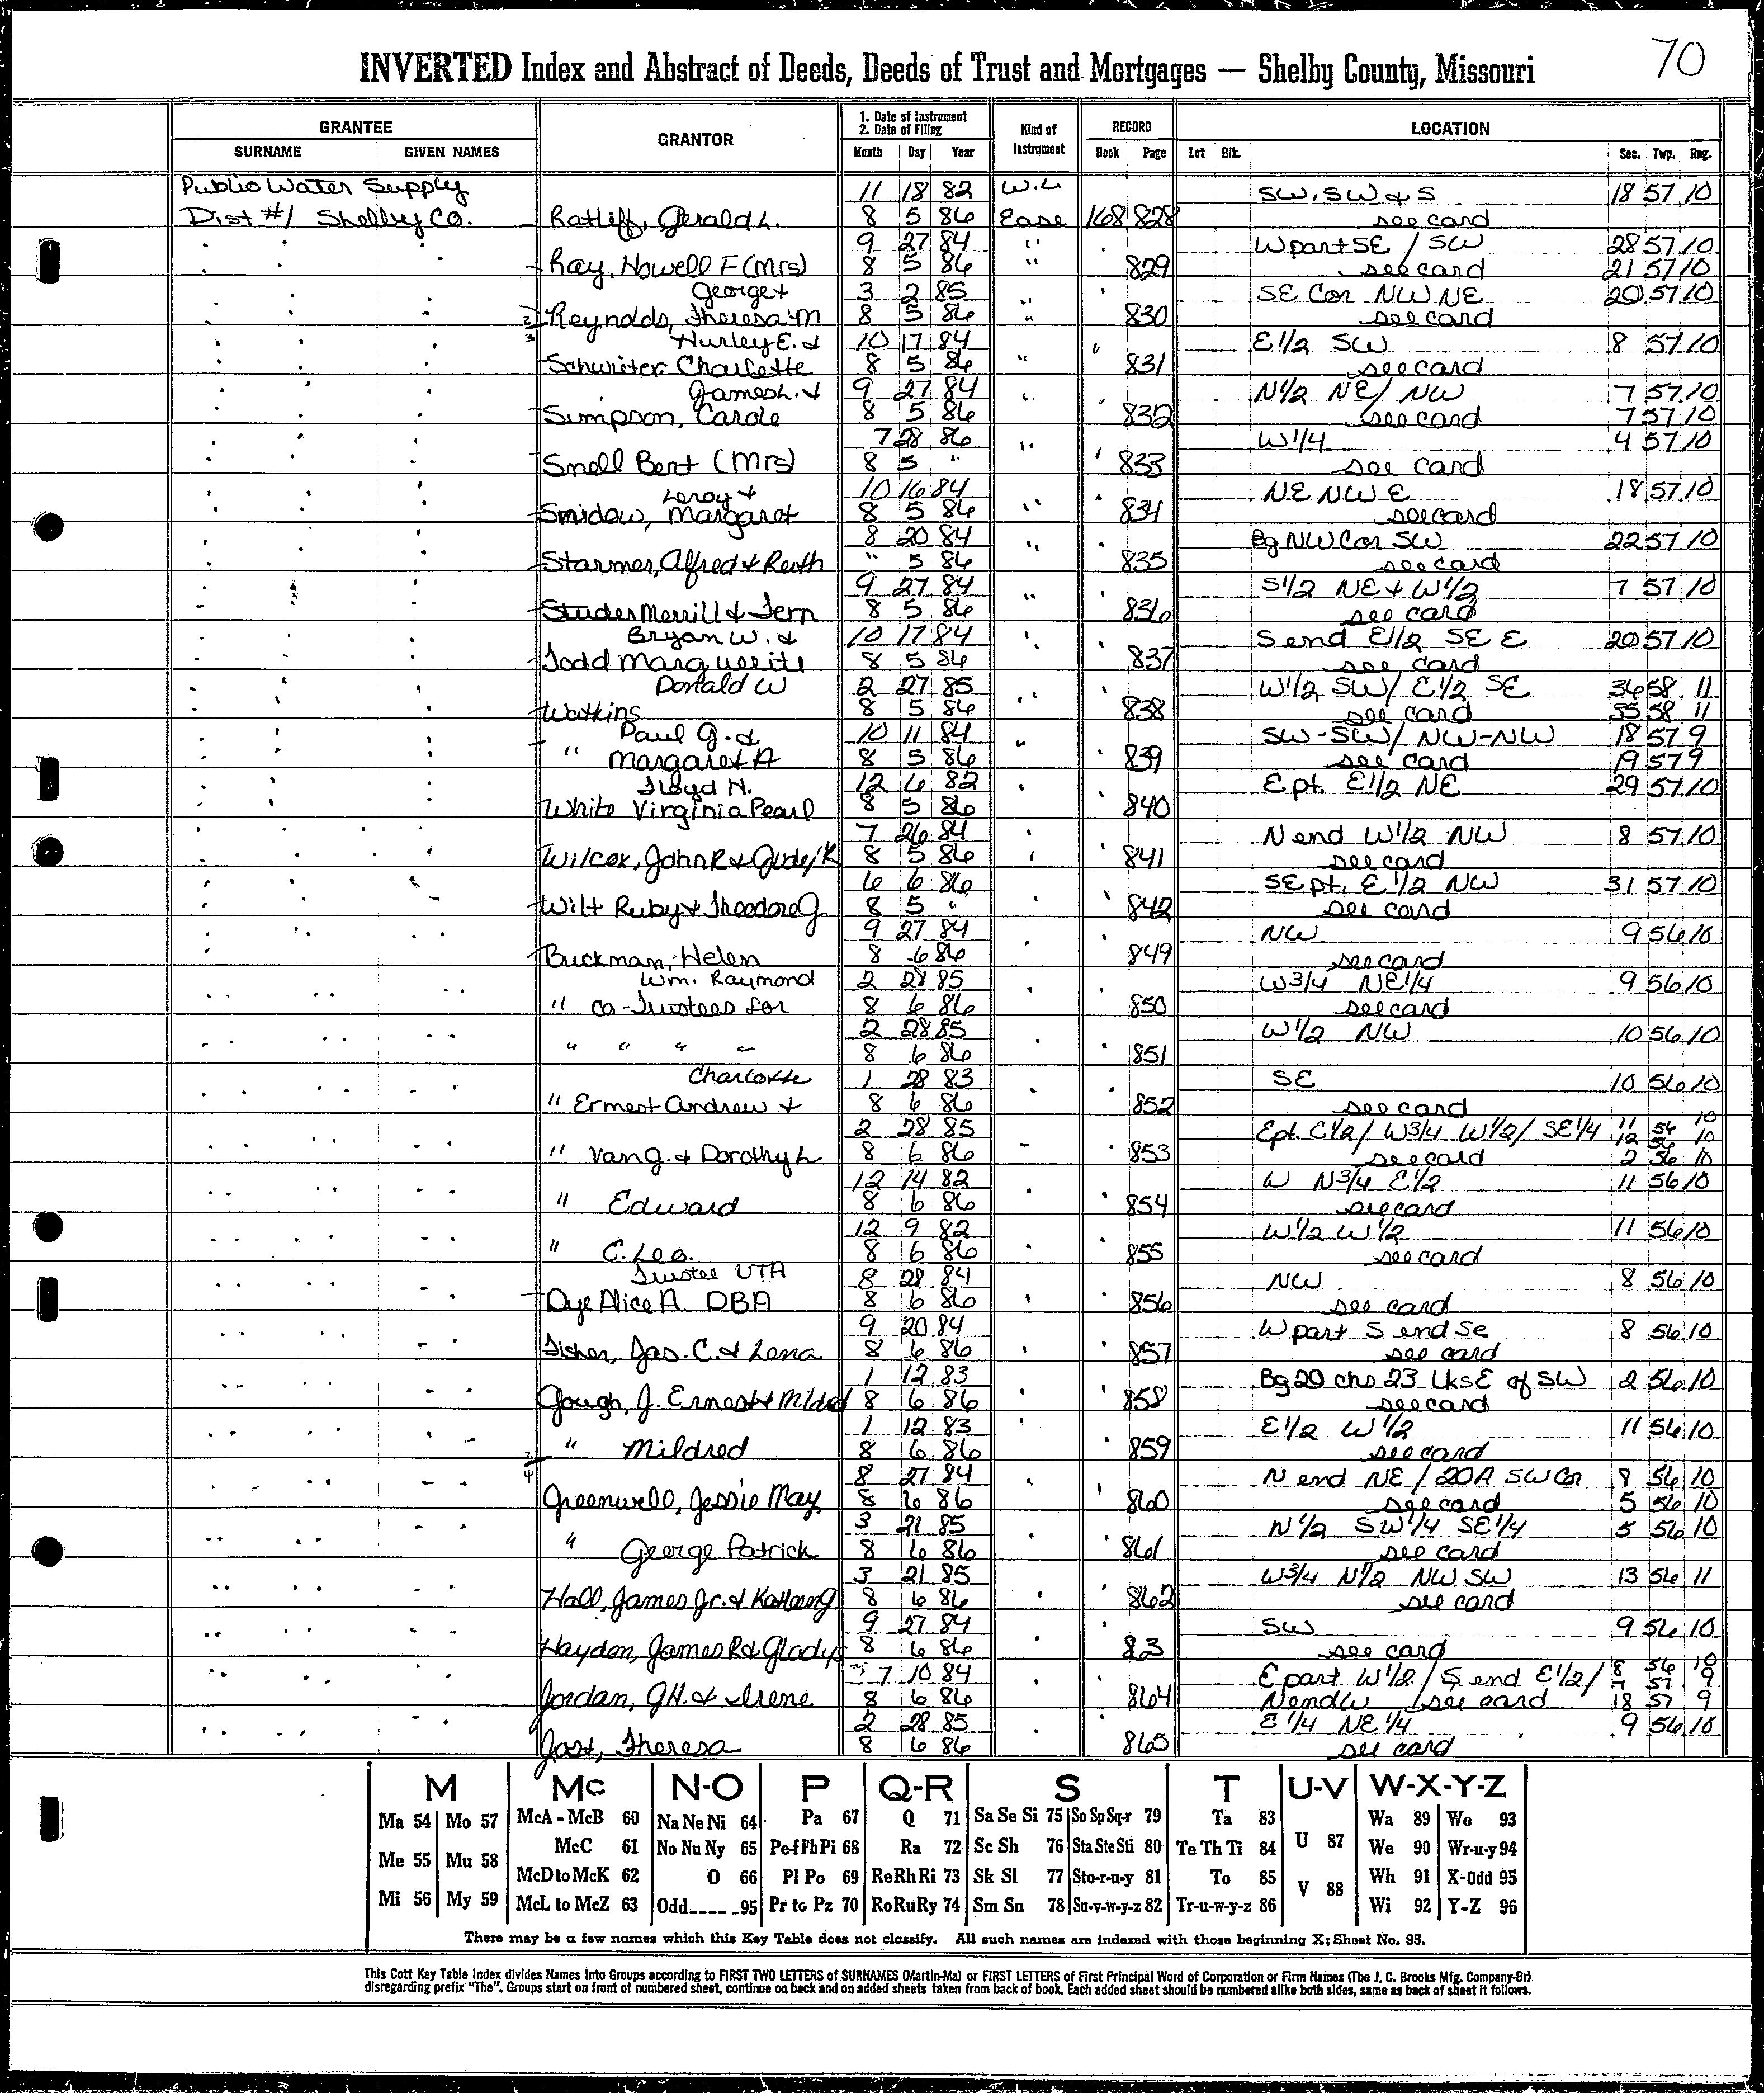 70
INVERTED Index and Abstract of Deeds, Deeds of Trust and Mortgages — Shelby County, Missouri
GRANTEE GRANTOR 1. Date of Instrument 2. Date of Filing Kind of Instrument RECORD LOCATION
SURNAME GIVEN NAMES Month Day Year Book Page Lot Blk. Sec. Twp. Rng.
Public Water Supply 11 18 82 W.L SW, SW & S 18 57 10
Dist #1 Shelby Co. Ratliff, Gerald L. 8 5 86 Ease 168 828 see card
9 27 84 " W part SE / SW 28 57 10
Ray, Howell F (Mrs) 8 5 86 " 829 see card 21 57 10
George & 3 2 85 " SE Cor NW NE 20 57 10
Reynolds, Theresa M 8 5 86 " 830 see card
Hurley E. & 10 17 84 E1/2 SW 8 57 10
Schwieter Charlotte 8 5 86 " 831 see card
James L. & 9 27 84 N1/2 NE / NW 7 57 10
Simpson, Carole 8 5 86 832 see card 7 57 10
7 28 86 W1/4 4 57 10
Snell Bert (Mrs) 8 5 " 833 see card
Leroy & 10 16 84 NE NW E 18 57 10
Smidow, Margaret 8 5 86 834 see card
8 20 84 Bg NW Cor SW 22 57 10
Starmer, Alfred & Ruth " 5 86 835 see card
9 27 84 S1/2 NE & W1/2 7 57 10
Studer Merrill & Fern 8 5 86 836 see card
Bryan W. & 10 17 84 S end E1/2 SE E 20 57 10
Todd Marguerite 8 5 86 837 see card
Donald W 2 27 85 W1/2 SW / E1/2 SE 36 58 11
Watkins 8 5 86 838 see card 35 58 11
Paul G. & 10 11 84 SW-SW / NW-NW 18 57 9
" Margaret A 8 5 86 839 see card 19 57 9
Floyd N. 12 6 82 E pt. E1/2 NE 29 57 10
White Virginia Pearl 8 5 86 840
7 26 84 N end W1/2 NW 8 57 10
Wilcox, John R & Judy K 8 5 86 841 see card
6 6 86 SE pt. E1/2 NW 31 57 10
Wilt Ruby & Theodore J. 8 5 " 842 see card
9 27 84 NW 9 56 10
Buckman, Helen 8 6 86 849 see card
Wm. Raymond 2 28 85 W3/4 NE1/4 9 56 10
" co-Trustees for 8 6 86 850 see card
2 28 85 W1/2 NW 10 56 10
" " " " 8 6 86 851
Charlotte 1 28 83 SE 10 56 10
" Ernest Andrew & 8 6 86 852 see card
2 28 85 Ept. E1/2 / W3/4 W1/2 / SE1/4 11 56 10
12 56 10
" Van G. & Dorothy L 8 6 86 853 see card 2 56 10
12 14 82 W N3/4 E1/2 11 56 10
" Edward 8 6 86 854 see card
12 9 82 W1/2 W1/2 11 56 10
" C. Leo. 8 6 86 855 see card
Trustee UTA 8 28 84 NW 8 56 10
Dye Alice A. DBA 8 6 86 856 see card
9 20 84 W part S end Se 8 56 10
Fisher, Jas. C. & Lena 8 6 86 857 see card
1 12 83 Bg 20 chs 23 LksE of SW 2 56 10
Gough, J. Ernest & Mildred 8 6 86 858 see card
1 12 83 E1/2 W1/2 11 56 10
" Mildred 8 6 86 859 see card
8 27 84 N end NE / 20A SW Cor 8 56 10
Greenwell, Jessie May 8 6 86 860 see card 5 56 10
3 21 85 N1/2 SW1/4 SE1/4 5 56 10
" George Patrick 8 6 86 861 see card
3 21 85 W3/4 N1/2 NW SW 13 56 11
Hall, James Jr. & 8 6 86 862 see card
9 27 84 SW 9 56 10
Hayden, James R & Gladys 8 6 86 83 see card
7 10 84 E part W1/2 / S end E1/2 / 8 56 10
7 57 9
Jordan, J.H. & Irene 8 6 86 864 N end W / see card 18 57 9
2 28 85 E1/4 NE1/4 9 56 10
Jost, Theresa 8 6 86 865 see card
M Mc N-O P Q-R S T U-V W-X-Y-Z
Ma 54 Mo 57 McA - McB 60 Na Ne Ni 64 Pa 67 Q 71 Sa Se Si 75 So Sp Sq-r 79 Ta 83 U 87 Wa 89 Wo 93
McC 61 No Nu Ny 65 Pe-f Ph Pi 68 Ra 72 Sc Sh 76 Sta Ste Sti 80 Te Th Ti 84 We 90 Wr-u-y 94
Me 55 Mu 58 McD to McK 62 O 66 Pl Po 69 Re Rh Ri 73 Sk Sl 77 Sto-r-u-y 81 To 85 V 88 Wh 91 X-Odd 95
Mi 56 My 59 McL to McZ 63 Odd____95 Pr to Pz 70 Ro Ru Ry 74 Sm Sn 78 Su-v-w-y-z 82 Tr-u-w-y-z 86 Wi 92 Y-Z 96
There may be a few names which this Key Table does not classify. All such names are indexed with those beginning X; Sheet No. 95.
This Cott Key Table Index divides Names into Groups according to FIRST TWO LETTERS of SURNAMES (Martin-Ma) or FIRST LETTERS of First Principal Word of Corporation or Firm Names (The J. C. Brooks Mfg. Company-Br)
disregarding prefix "The". Groups start on front of numbered sheet, continue on back and on added sheets taken from back of book. Each added sheet should be numbered alike both sides, same as back of sheet it follows.